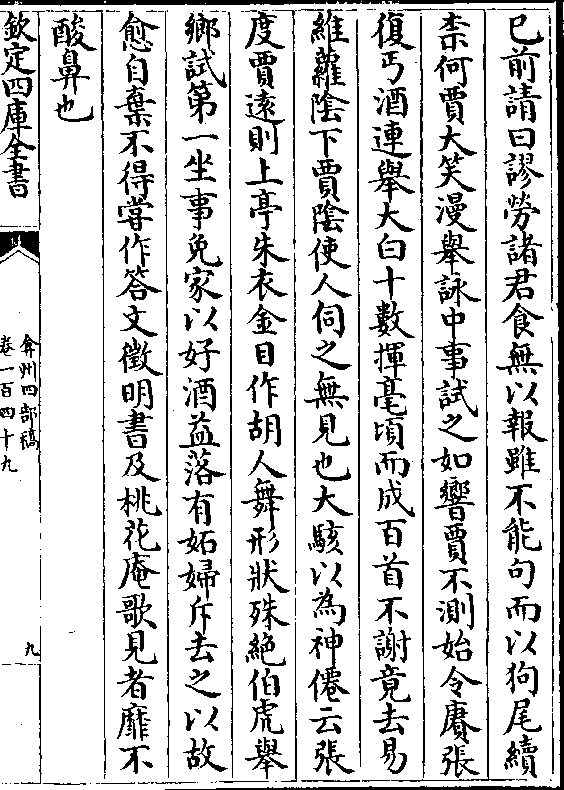 已前請曰謬勞諸君食無以報雖不能句而以狗尾續
柰何賈大笑漫舉詠中事試之如響賈不測始令賡張
復丐酒連舉大白十數揮毫頃而成百首不謝竟去易
維蘿陰下賈陰使人伺之無見也大駭以為神僊云張
度賈遠則上亭朱衣金目作胡人舞形狀殊絶伯虎舉
鄉試第一坐事免家以好酒益落有妬婦斥去之以故
愈自棄不得嘗作答文徵明書及桃花庵歌見者靡不
酸鼻也
欽定四庫全書
弇州四部稿
卷一百四十九
九